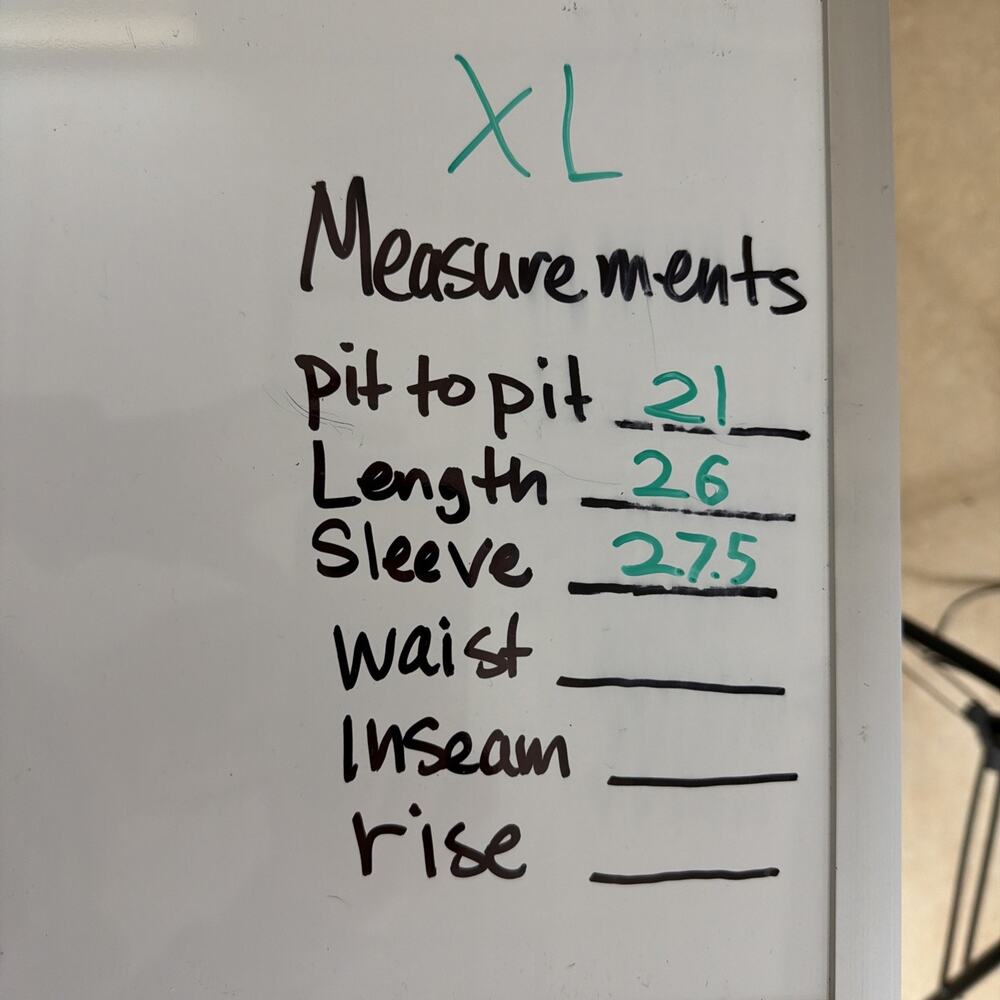 XL
Measurements
pit to pit 21
Length 26
Sleeve 27.5
waist
Inseam
rise